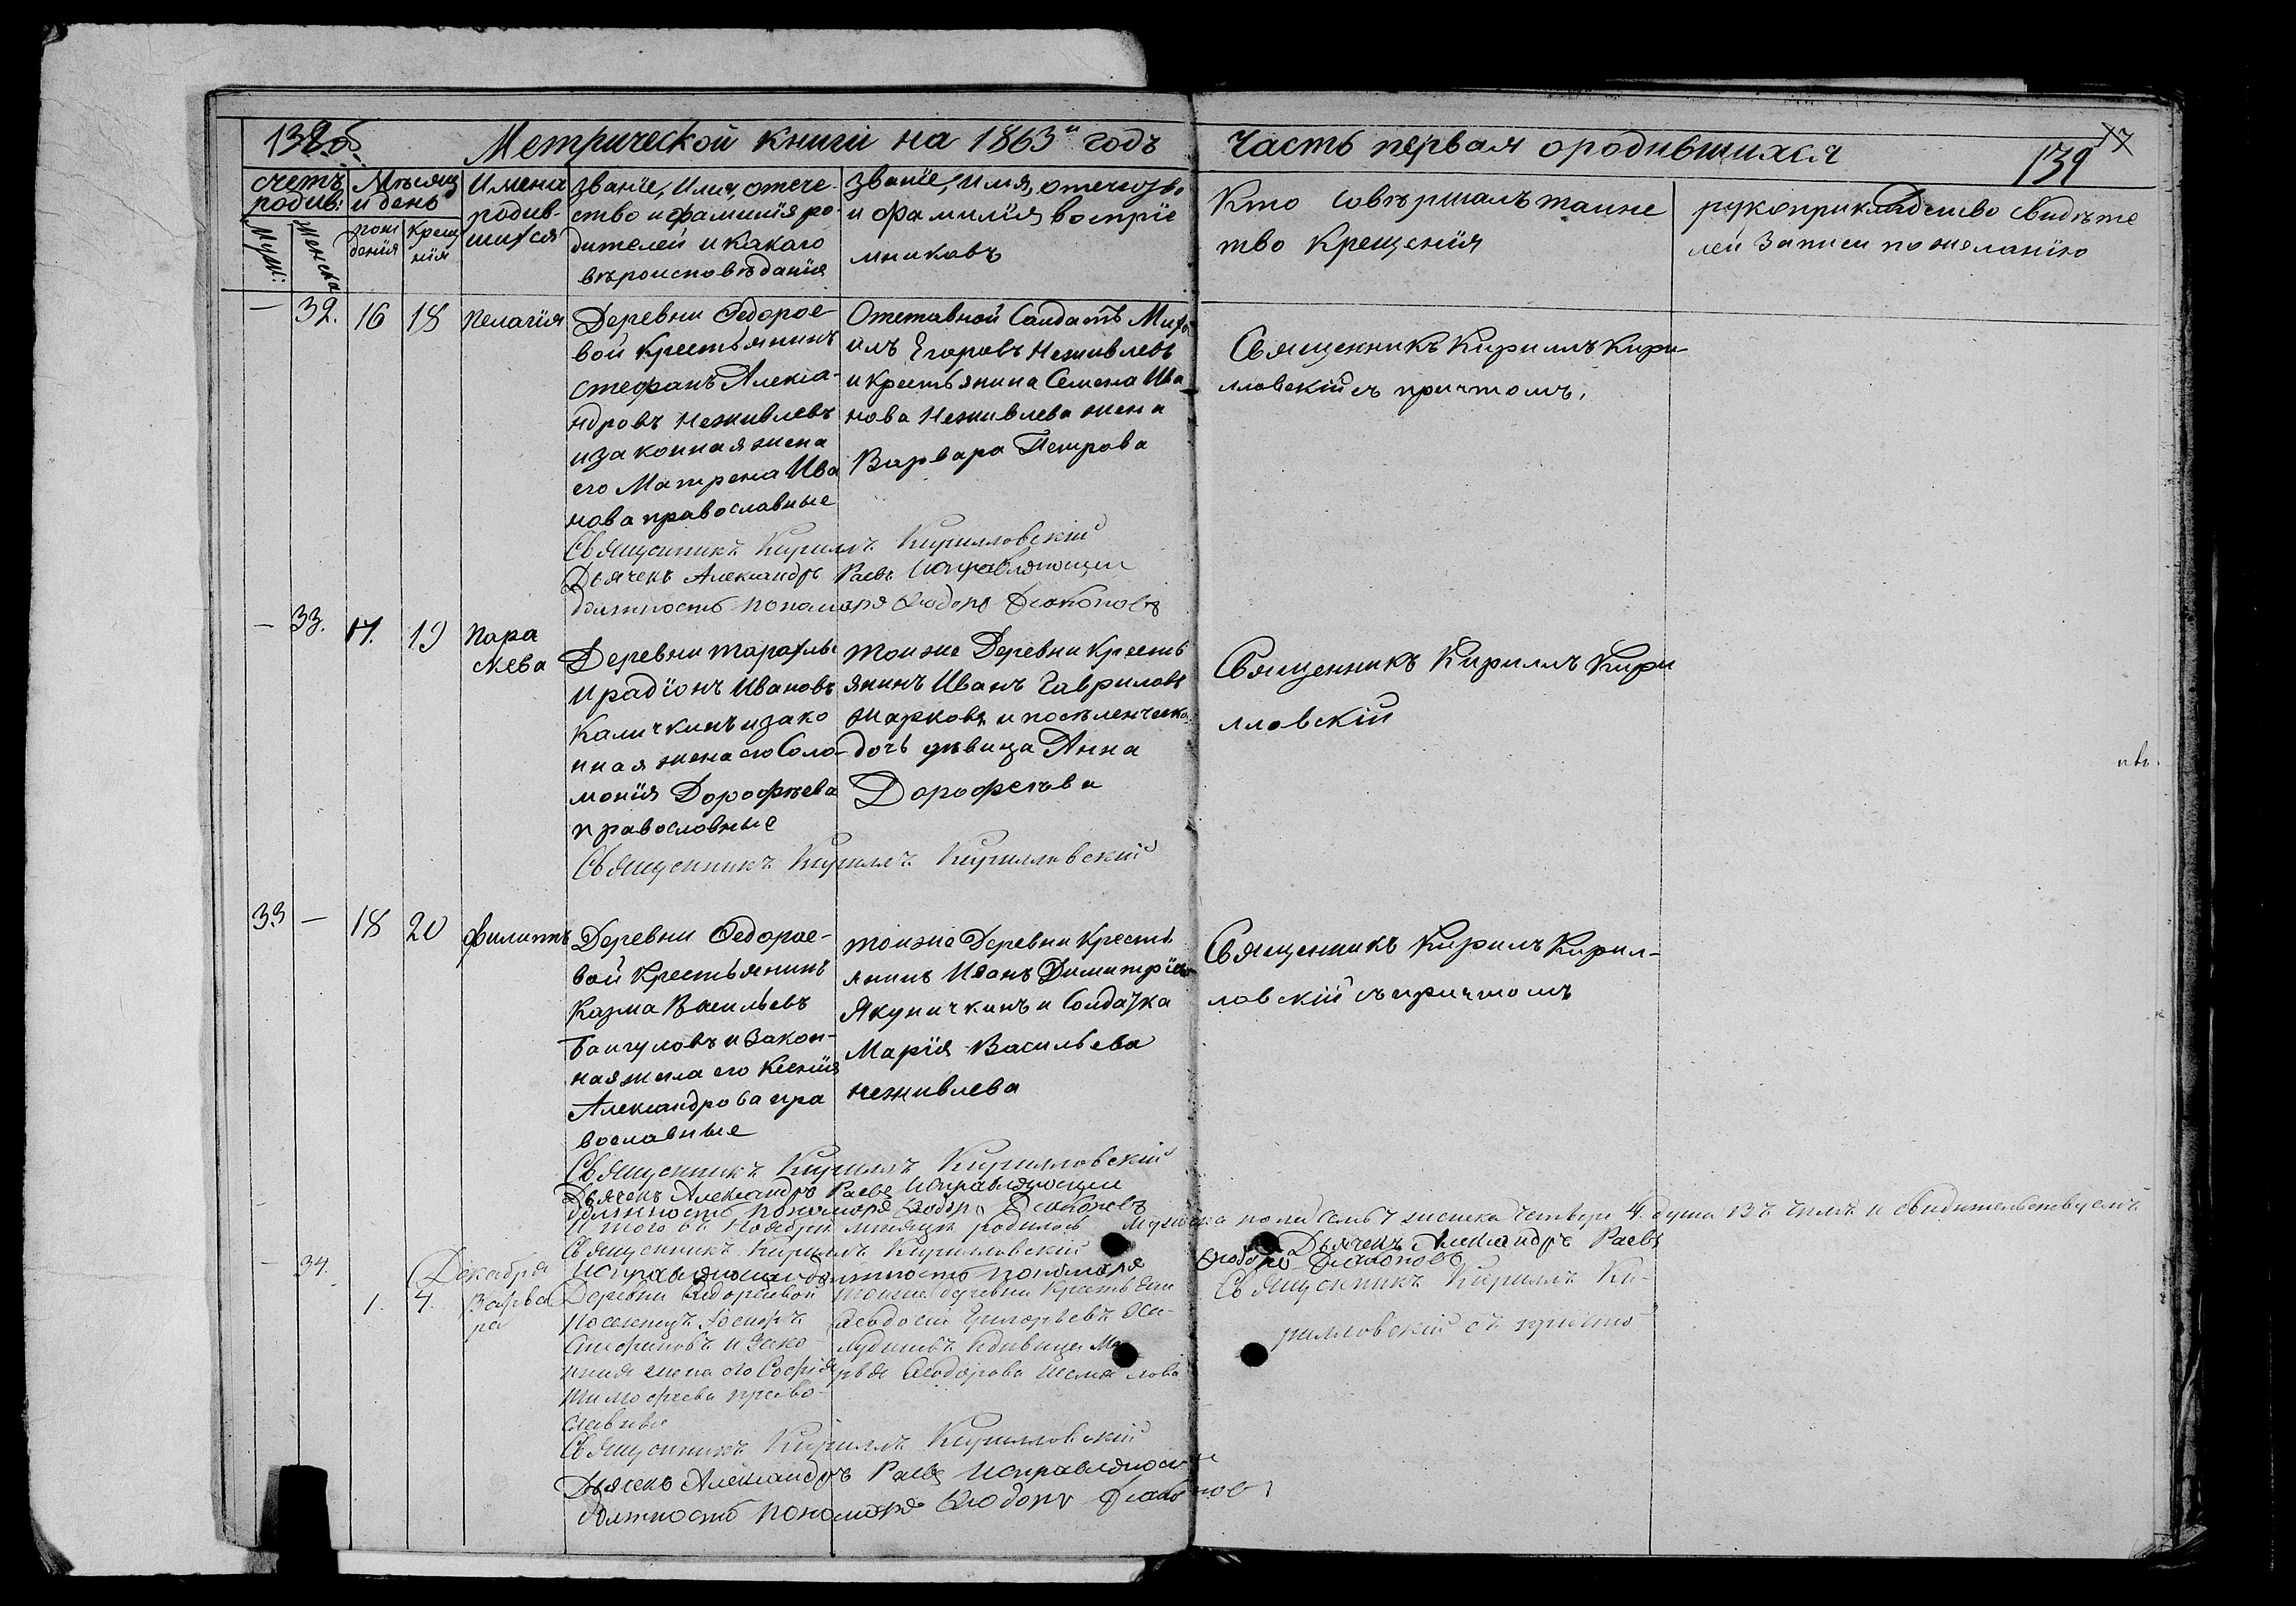 138 об.
Метрической книги на 1863й годъ
Часть первая о родившихся
139
17
счетъ родив:
Муж:
Женска
Мѣсяц и день
рождения
Крещ нія
Имена родив- шихся
Званіе, Имя, отече-
ство и фамилія ро-
дителей и какого
вѣроисповѣданія
Званіе, имя, отечество
и фамилія воспріе
мниковъ
Кто совѣршалъ таинс
тво Крещенія
рукоприкладство свидѣте
лей Записи по желанію
— 32. 16 18 Пелагія
Деревни Ѳедорое-
вой Крестьянинъ
Стефанъ Алекса-
ндровъ Неживлевъ
и законная жена
его Матрена Ива
нова православные
Отставной Солдатъ Миха
илъ Егоровъ Неживлевъ
и крестьянина Семена Ива
нова Неживлева жена
Варвара Петрова
Священникъ Кириллъ Кири
лловскій съ причтомъ.
Священникъ Кириллъ Кирилловскій
Дьячекъ Александръ Раевъ Исправляющий
должность пономаря Ѳеодоръ Диаконовъ
— 33. 17. 19 Пара
скева
Деревни
Ирадіонъ Ивановъ
Каличкинъ и зако
нная жена его Соло-
монія Дорофѣева
православные
тоиже Деревни Кресть
янинъ Иванъ Гавриловъ
Жарковъ и
дочь дѣвица Анна
Дорофеѣва
Священникъ Кириллъ Кири
лловскій
Священникъ Кириллъ Кирилловскій
33 — 18 20 Филиппъ
Деревни Ѳедорое-
вой Крестьянинъ
Казма Васильевъ
Баигуловъ и Закон-
ная жена его Ксенія
Александрова пра
вославные
тоиже Деревни Кресть
янинъ Иванъ Димитріев
Якуничкинъ и Солдатка
Марія Васильева
Неживлева
Священникъ Кирилъ Кирил-
ловскій съ причтомъ
Священникъ Кириллъ Кирилловскій
Дьячекъ Александръ Раевъ Исправляющии
должность пономаря Ѳеодоръ Диаконовъ
Итого въ Ноябрѣ мѣсяцѣ родилось Мужеска пола семь 7 женска четыре 4. душа въ чемъ и свидѣтельствуемъ
Священникъ Кириллъ Кирилловскій Дьячекъ Александръ Раевъ
Исправляющии должность пономаря Ѳеодоръ Диаконовъ
— 34. Декабря
1. 4. Варва
ра
Деревни Ѳедореевой
поселенецъ Іосифъ
Стефановъ и Зако-
нная жена его Софія
Тимофеева право-
славные
тоиже деревни Крестьянин
Ѳеодосій Григорьевъ
и дѣвица Ма
рья Ѳеодорова
Священникъ Кириллъ Ки-
рилловскій съ причто
Священникъ Кириллъ Кирилловскій
Дьячекъ Александръ Раевъ Исправляющии
должность пономаря Ѳеодоръ Диаконовъ